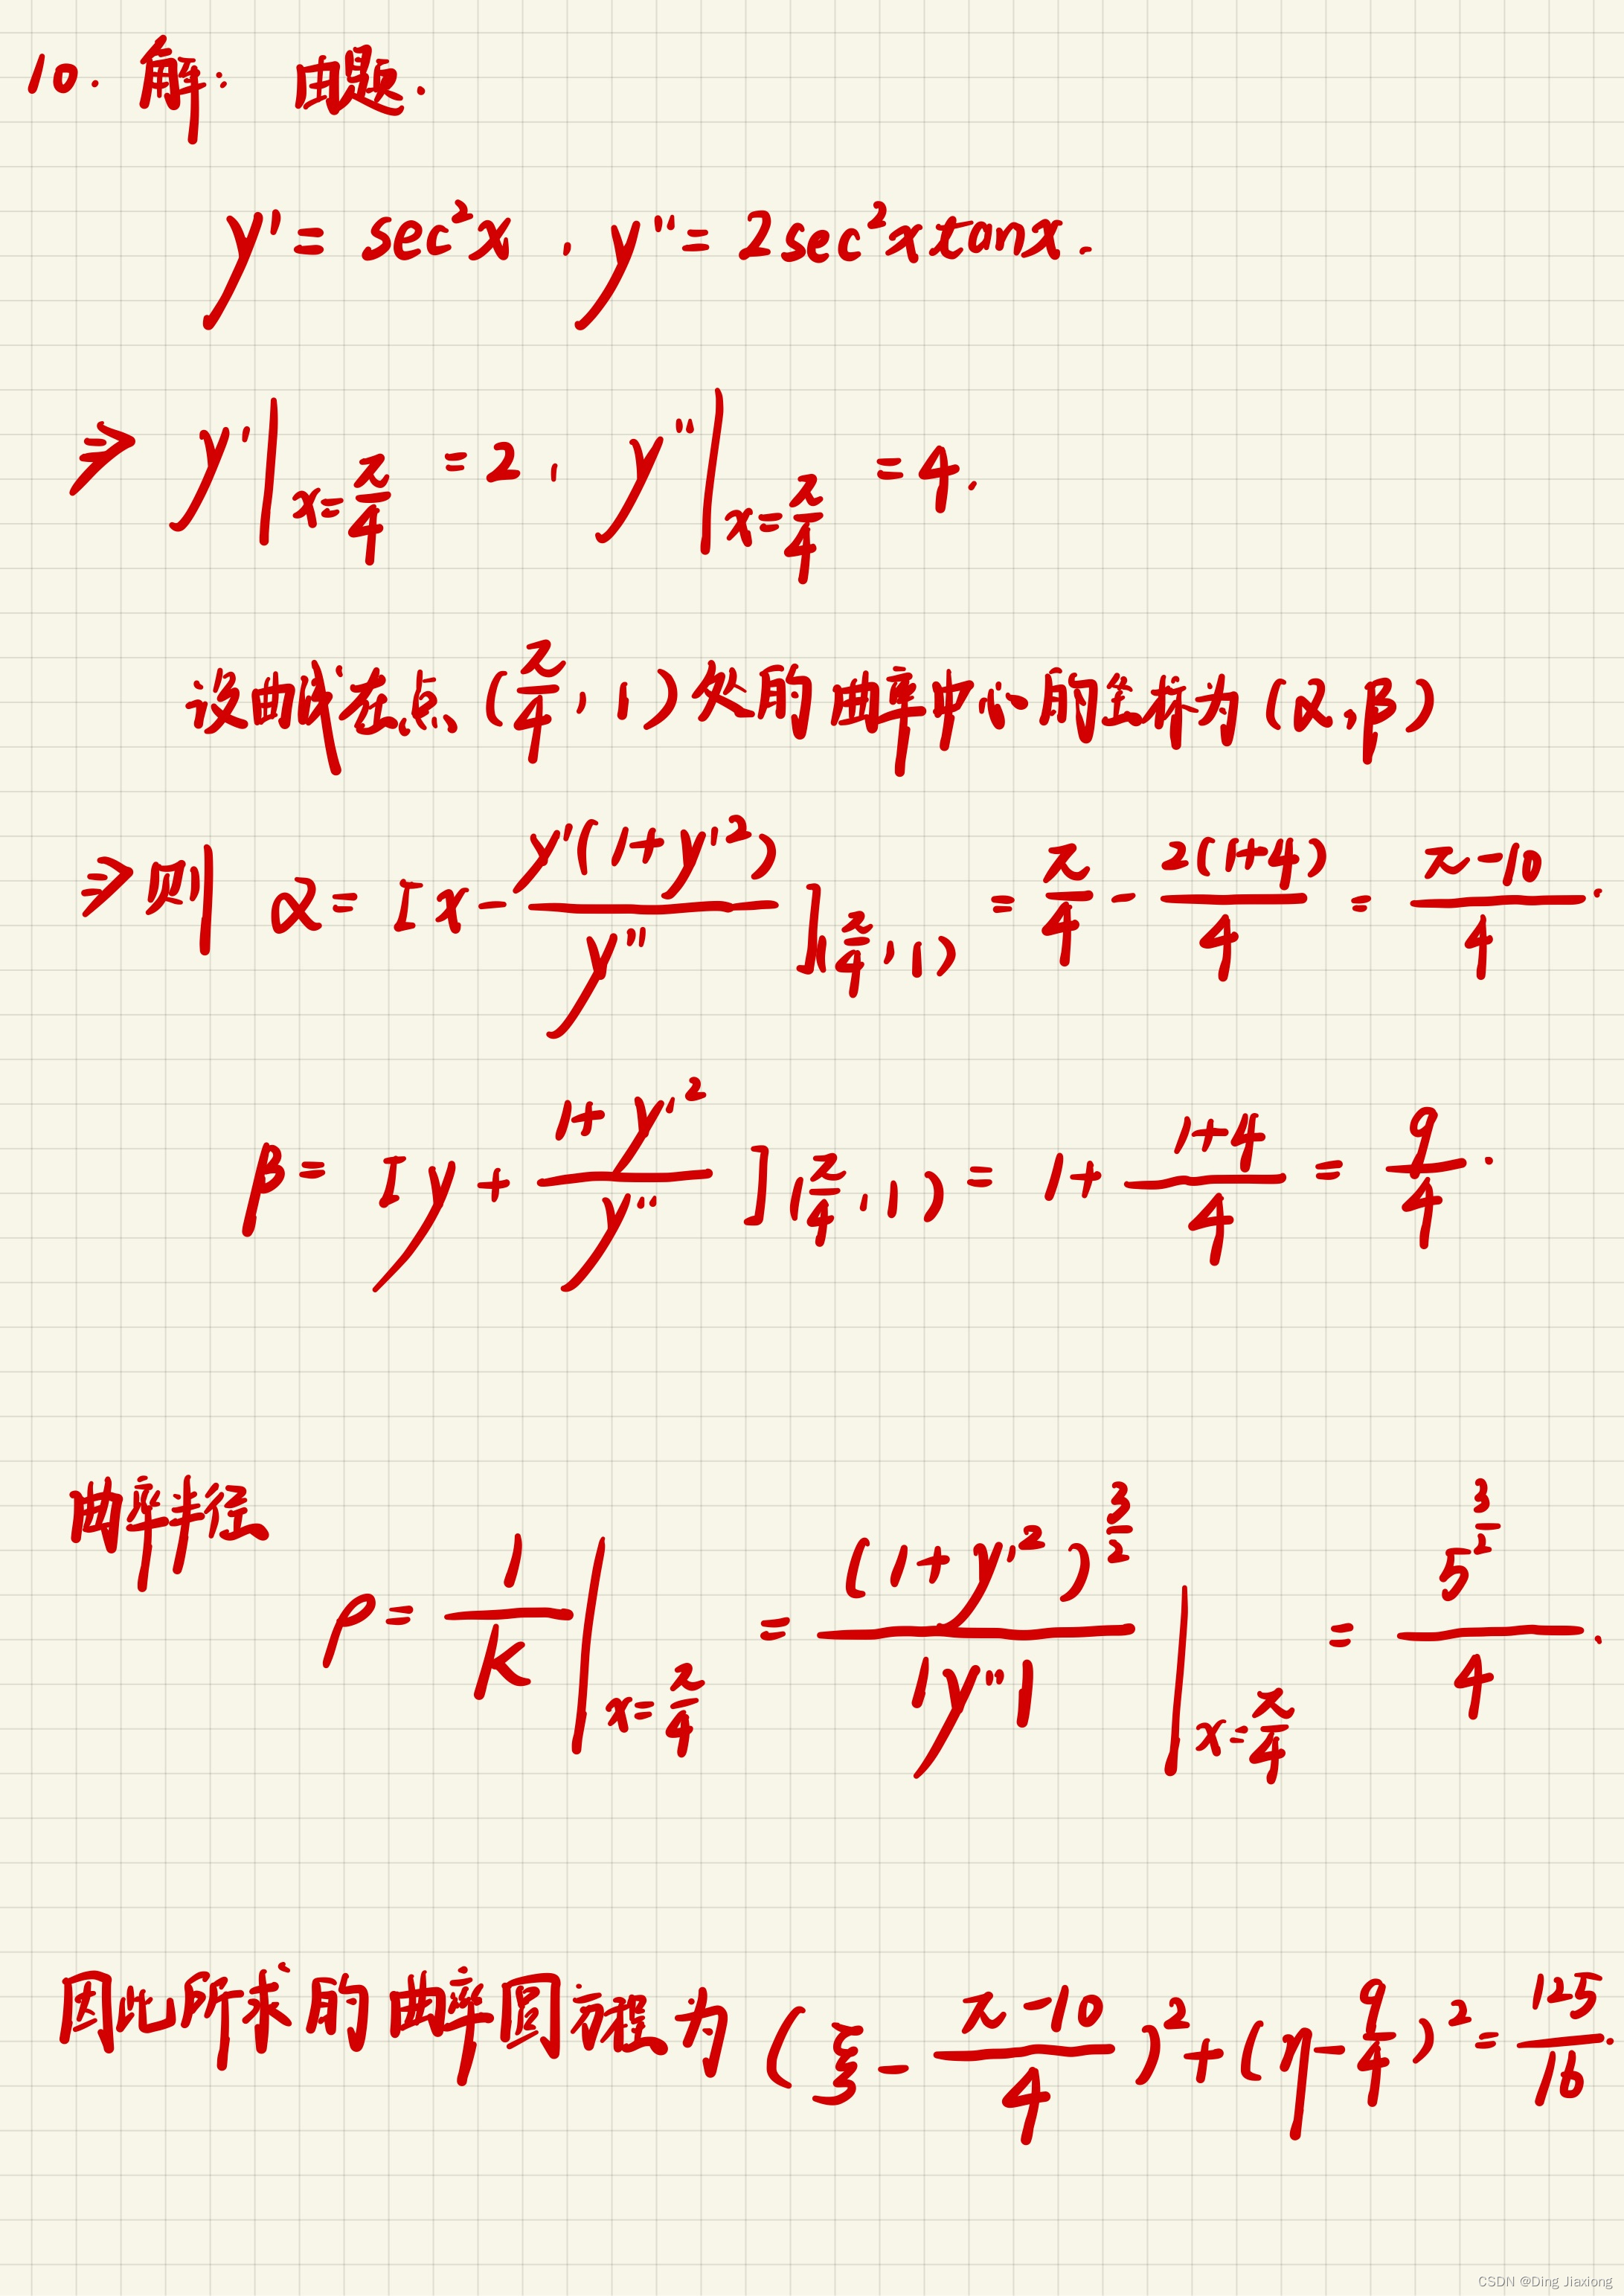 10. 解: 由题.
y' = sec²x , y'' = 2sec²x tanx .
⇒ y'|x=π/4 = 2 , y''|x=π/4 = 4 .
设曲线在点 (π/4, 1) 处的曲率中心的坐标为 (α, β)
⇒ 则 α = [x - y'(1+y'²)/y'']|(π/4, 1) = π/4 - 2(1+4)/4 = (π-10)/4 .
β = [y + (1+y'²)/y''](π/4, 1) = 1 + (1+4)/4 = 9/4 .
曲率半径
ρ = 1/K |x=π/4 = (1+y'²)^(3/2)/|y''| |x=π/4 = 5^(3/2)/4 .
因此所求的曲率圆方程为 (ξ - (π-10)/4)² + (η - 9/4)² = 125/16 .
CSDN @Ding Jiaxiong